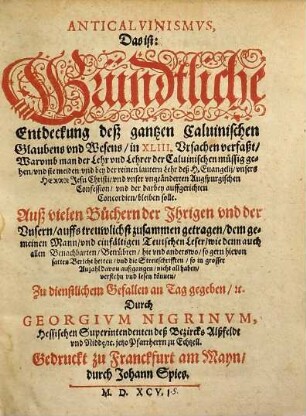 ANTICALVINISMVS,
Das ist:
Gründtliche
Entdeckung deß gantzen Caluinischen
Glaubens vnd Wesens / in XLIII. Vrsachen verfaßt /
Warumb man der Lehr vnd Lehrer der Caluinischen müssig ge-
hen / vnd sie meiden / vnd bey der reinen lautern Lehr deß H. Euangelij / vnsers
HERRN Jesu Christi / vnd vnser vngeänderten Augspurgischen
Confession / vnd der darbey auffgerichten
Concordien / bleiben solle.
Auß vielen Büchern der Jhrigen vnd der
Vnsern / auffs trewlichst zusammen getragen / dem ge-
meinen Mann / vnd einfältigen Teutschen Leser / wie denn auch
allen Benachbarten / Betrübten / hie vnd anderswo / so gern hieruon
satten Bericht hetten / vnd die Streitschrifften / so in grosser
Anzahl dauon außgangen / nicht all haben /
verstehn vnd lesen können /
Zu dienstlichem Gefallen an Tag gegeben / ꝛc.
Durch
GEORGIVM NIGRINVM,
Hessischen Superintendenten deß Bezircks Alßfeldt
vnd Nidda ꝛc. jetzo Pfarrherrn zu Echzell.
Gedruckt zu Franckfurt am Mayn /
durch Johann Spies.
M. D. XCV.